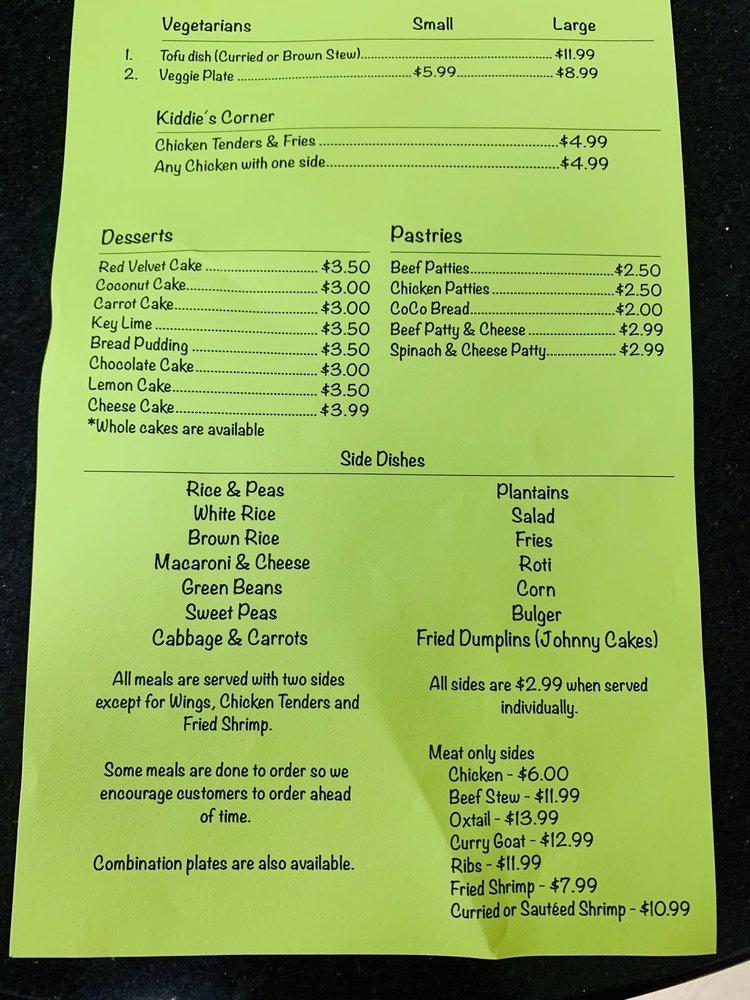 Vegetarians Small Large
1. Tofu dish (Curried or Brown Stew)............................................................ $11.99
2. Veggie Plate ...........................................$5.99........................$8.99
Kiddie's Corner
Chicken Tenders & Fries ............................................................$4.99
Any Chicken with one side..........................................................$4.99
Desserts
Red Velvet Cake ............................ $3.50
Coconut Cake................................. $3.00
Carrot Cake.................................... $3.00
Key Lime ........................................ $3.50
Bread Pudding ............................... $3.50
Chocolate Cake............................... $3.00
Lemon Cake.................................... $3.50
Cheese Cake................................... $3.99
*Whole cakes are available
Pastries
Beef Patties....................................$2.50
Chicken Patties ..............................$2.50
CoCo Bread....................................$2.00
Beef Patty & Cheese ...................... $2.99
Spinach & Cheese Patty.................. $2.99
Side Dishes
Rice & Peas
White Rice
Brown Rice
Macaroni & Cheese
Green Beans
Sweet Peas
Cabbage & Carrots
Plantains
Salad
Fries
Roti
Corn
Bulger
Fried Dumplins (Johnny Cakes)
All meals are served with two sides
except for Wings, Chicken Tenders and
Fried Shrimp.
Some meals are done to order so we
encourage customers to order ahead
of time.
Combination plates are also available.
All sides are $2.99 when served
individually.
Meat only sides
Chicken - $6.00
Beef Stew - $11.99
Oxtail - $13.99
Curry Goat - $12.99
Ribs - $11.99
Fried Shrimp - $7.99
Curried or Sautéed Shrimp - $10.99